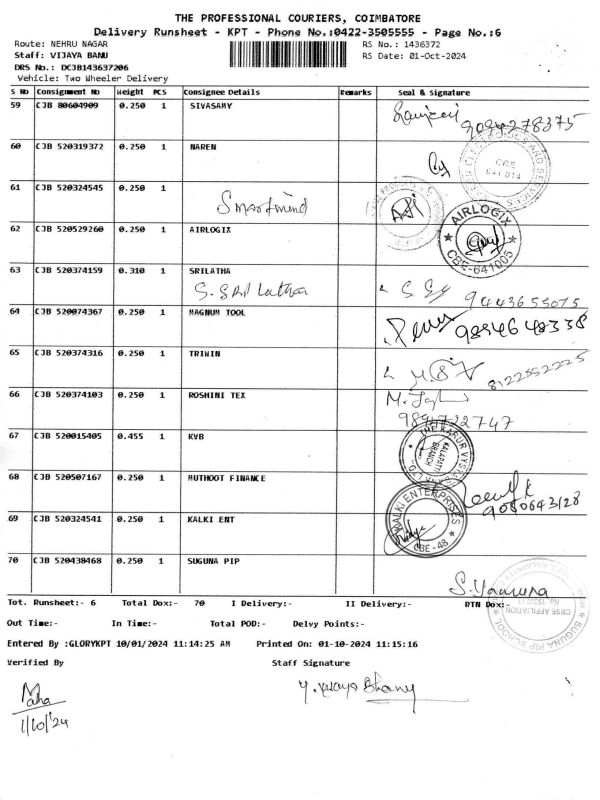 THE PROFESSIONAL COURIERS, COIMBATORE
Delivery Runsheet - KPT - Phone No.:0422-3505555 - Page No.:6
Route: NEHRU NAGAR RS No.: 1436372
Staff: VIJAYA BANU RS Date: 01-Oct-2024
DRS No.: DCJB143637206
Vehicle: Two Wheeler Delivery
S No Consignment No Weight PCS Consignee Details Remarks Seal & Signature
59 CJB 80604909 0.250 1 SIVASAMY
9094278375
60 CJB 520319372 0.250 1 NAREN
CBE
641 014
ELECTRONICS AND SERVICES
61 CJB 520324545 0.250 1
Smartmind
62 CJB 520529260 0.250 1 AIRLOGIX
AIRLOGIX
CBE-641005
63 CJB 520374159 0.310 1 SRILATHA
S. SRI Latha
9443655075
64 CJB 520074367 0.250 1 MAGNUM TOOL
9894648338
65 CJB 520374316 0.250 1 TRIWIN
8122552225
66 CJB 520374103 0.250 1 ROSHINI TEX
9894732747
67 CJB 520015405 0.455 1 KVB
THE KARUR VYSYA
KALAPATTI
BRANCH
68 CJB 520507167 0.250 1 MUTHOOT FINANCE
9080643128
69 CJB 520324541 0.250 1 KALKI ENT
KALKI ENTERPRISES
CBE-48
70 CJB 520438468 0.250 1 SUGUNA PIP
S. Yamuna
SUGUNA PIP SCHOOL
CBSE AFFILIATION
Tot. Runsheet:- 6 Total Dox:- 70 I Delivery:- II Delivery:- RTN Dox:-
Out Time:- In Time:- Total POD:- Delvy Points:-
Entered By :GLORYKPT 10/01/2024 11:14:25 AM Printed On: 01-10-2024 11:15:16
Verified By Staff Signature
Y. Vijaya Bhanu
Maha
1/10/24